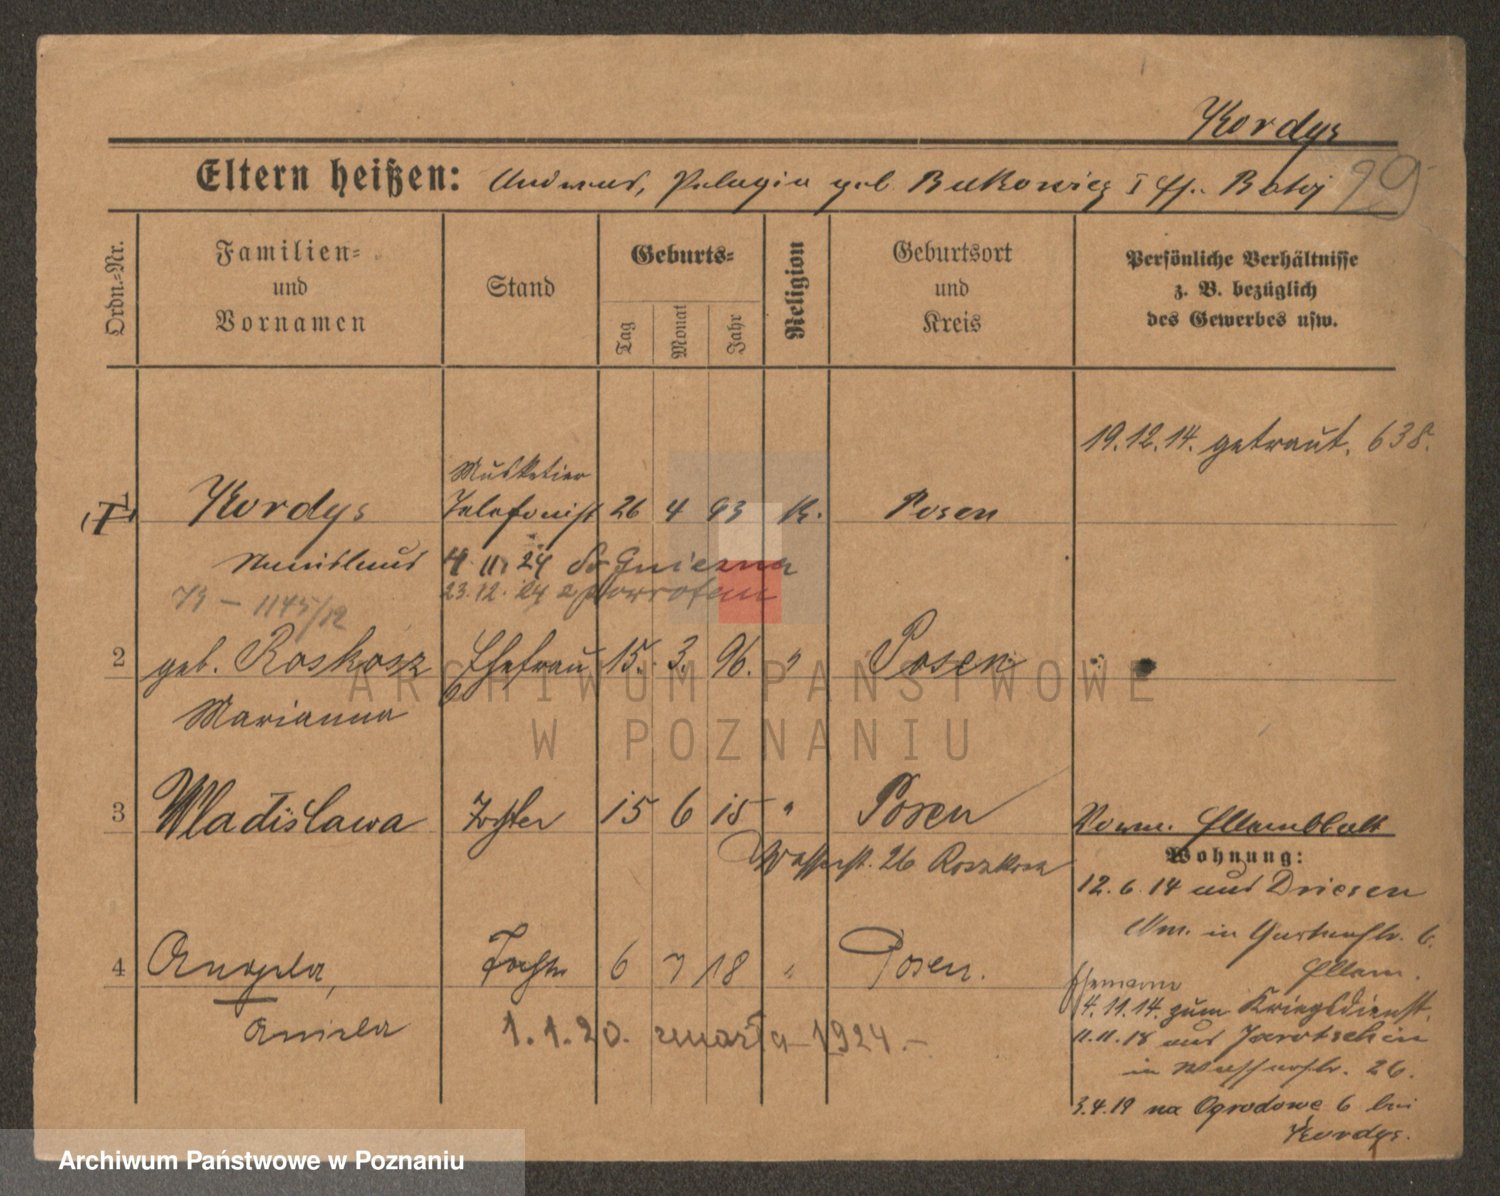 Kordys
Eltern heißen: Andreas, Pelagia geb. Bukowicz I Eh. Batoj
99
Ordn.-Nr.
Familien- und Vornamen
Stand
Geburts-
Tag
Monat
Jahr
Religion
Geburtsort und Kreis
Persönliche Verhältnisse
z. B. bezüglich
des Gewerbes usw.
19.12.14. getraut. 638.
Musketier
1 Kordys Telefonist 26 4 93 K. Posen
Stanislaus 4.11.24 do Gniezna
23.12.24 z powrotem
73 - 1145/12
2 geb. Roskosz Ehefrau 15. 3. 96. " Posen
Marianna
3 Wladislawa Tochter 15 6 15 " Posen
Wasserst. 26 Roszkosz
Vorm. Elternblatt
Wohnung:
12.6.14 aus Driesen
Vm. in Gartenstr. 6.
Eltern.
4 Angela, Tochter 6 7 18 " Posen.
Aniela
1.1.20. zmarła 1924.-
Ehemann
4.11.14. zum Kriegsdienst.
11.11.18 aus Jarotschin
in Wasserstr. 26.
3.4.19 na Ogrodowe 6 bei
Kordys.
ARCHIWUM PAŃSTWOWE
W POZNANIU
Archiwum Państwowe w Poznaniu